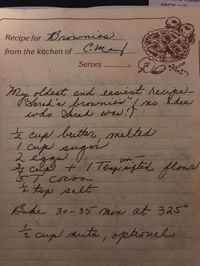 Recipe for Brownies
from the kitchen of C. May
Serves
My oldest and easiest recipe -
"Sarah's brownies" (no idea
who Sarah was!)
½ cup butter, melted
1 cup sugar
2 eggs
¾ cup + 1 Tbsp sifted flour
5 T cocoa
½ tsp salt
Bake 30-35 min at 325°
½ cup nuts, optional